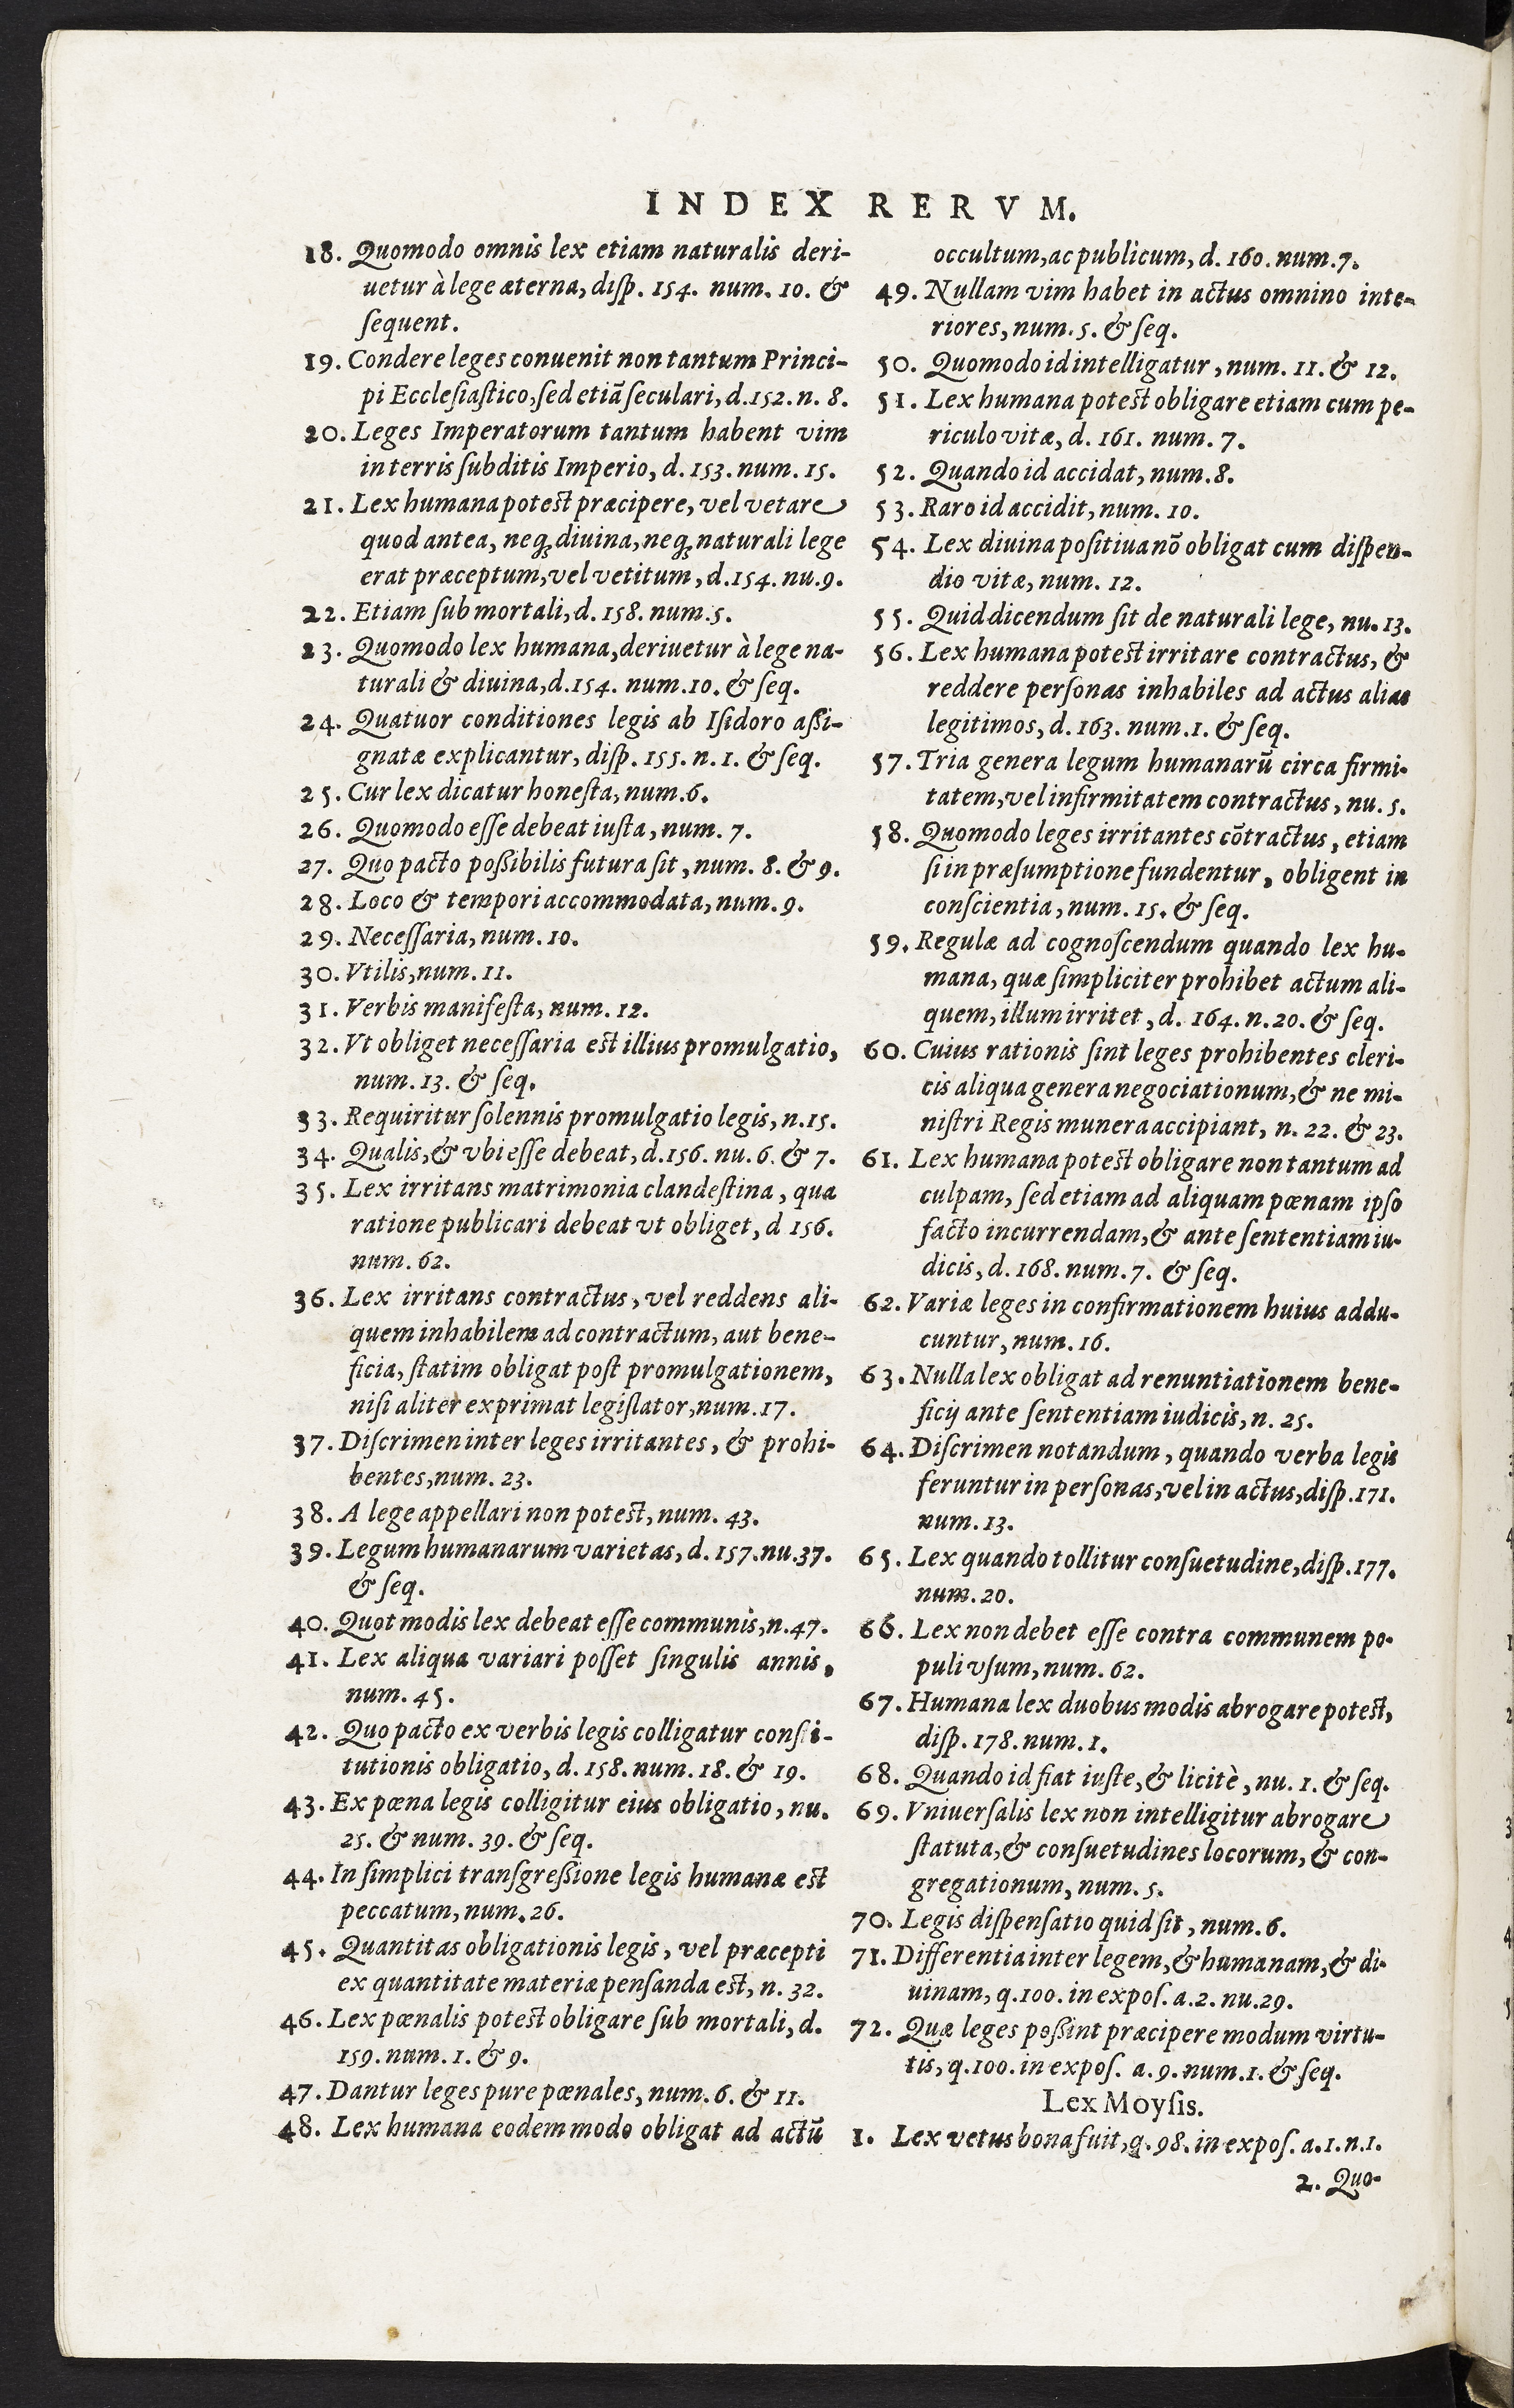 INDEX RERVM.
18. Quomodo omnis lex etiam naturalis deri-
uetur à lege æterna, diſp. 154. num. 10. &
ſequent.
19. Condere leges conuenit non tantum Princi-
pi Eccleſiaſtico, ſed etiā ſeculari, d.152. n. 8.
20. Leges Imperatorum tantum habent vim
in terris ſubditis Imperio, d. 153. num. 15.
21. Lex humana poteſt præcipere, vel vetare
quod antea, neq; diuina, neq; naturali lege
erat præceptum, vel vetitum, d.154. nu.9.
22. Etiam ſub mortali, d. 158. num.5.
23. Quomodo lex humana, deriuetur à lege na-
turali & diuina, d.154. num.10. & ſeq.
24. Quatuor conditiones legis ab Iſidoro aſſi-
gnatæ explicantur, diſp. 155. n. 1. & ſeq.
25. Cur lex dicatur honeſta, num.6.
26. Quomodo eſſe debeat iuſta, num. 7.
27. Quo pacto poſſibilis futura ſit, num. 8. & 9.
28. Loco & tempori accommodata, num. 9.
29. Neceſſaria, num. 10.
30. Vtilis, num. 11.
31. Verbis manifeſta, num. 12.
32. Vt obliget neceſſaria eſt illius promulgatio,
num. 13. & ſeq.
33. Requiritur ſolennis promulgatio legis, n.15.
34. Qualis, & vbi eſſe debeat, d.156. nu. 6. & 7.
35. Lex irritans matrimonia clandeſtina, qua
ratione publicari debeat vt obliget, d 156.
num. 62.
36. Lex irritans contractus, vel reddens ali-
quem inhabilem ad contractum, aut bene-
ficia, ſtatim obligat poſt promulgationem,
niſi aliter exprimat legiſlator, num.17.
37. Diſcrimen inter leges irritantes, & prohi-
bentes, num. 23.
38. A lege appellari non poteſt, num. 43.
39. Legum humanarum varietas, d. 157. nu.37.
& ſeq.
40. Quot modis lex debeat eſſe communis, n.47.
41. Lex aliqua variari poſſet ſingulis annis,
num. 45.
42. Quo pacto ex verbis legis colligatur conſti-
tutionis obligatio, d. 158. num. 18. & 19.
43. Ex pœna legis colligitur eius obligatio, nu.
25. & num. 39. & ſeq.
44. In ſimplici tranſgreſſione legis humanæ eſt
peccatum, num. 26.
45. Quantitas obligationis legis, vel præcepti
ex quantitate materiæ penſanda eſt, n. 32.
46. Lex pœnalis poteſt obligare ſub mortali, d.
159. num. 1. & 9.
47. Dantur leges pure pœnales, num. 6. & 11.
48. Lex humana eodem modo obligat ad actū
occultum, ac publicum, d. 160. num.7.
49. Nullam vim habet in actus omnino inte-
riores, num. 5. & ſeq.
50. Quomodo id intelligatur, num. 11. & 12.
51. Lex humana poteſt obligare etiam cum pe-
riculo vitæ, d. 161. num. 7.
52. Quando id accidat, num. 8.
53. Raro id accidit, num. 10.
54. Lex diuina poſitiua nō obligat cum diſpen-
dio vitæ, num. 12.
55. Quid dicendum ſit de naturali lege, nu. 13.
56. Lex humana poteſt irritare contractus, &
reddere perſonas inhabiles ad actus alias
legitimos, d. 163. num.1. & ſeq.
57. Tria genera legum humanarū circa firmi-
tatem, vel infirmitatem contractus, nu. 5.
58. Quomodo leges irritantes cōtractus, etiam
ſi in præſumptione fundentur, obligent in
conſcientia, num. 15. & ſeq.
59. Regulæ ad cognoſcendum quando lex hu-
mana, quæ ſimpliciter prohibet actum ali-
quem, illum irritet, d. 164. n. 20. & ſeq.
60. Cuius rationis ſint leges prohibentes cleri-
cis aliqua genera negociationum, & ne mi-
niſtri Regis munera accipiant, n. 22. & 23.
61. Lex humana poteſt obligare non tantum ad
culpam, ſed etiam ad aliquam pœnam ipſo
facto incurrendam, & ante ſententiam iu-
dicis, d. 168. num. 7. & ſeq.
62. Variæ leges in confirmationem huius addu-
cuntur, num. 16.
63. Nulla lex obligat ad renuntiationem bene-
ficij ante ſententiam iudicis, n. 25.
64. Diſcrimen notandum, quando verba legis
feruntur in perſonas, vel in actus, diſp. 171.
num. 13.
65. Lex quando tollitur conſuetudine, diſp. 177.
num. 20.
66. Lex non debet eſſe contra communem po-
puli vſum, num. 62.
67. Humana lex duobus modis abrogare poteſt,
diſp. 178. num. 1.
68. Quando id fiat iuſte, & licitè, nu. 1. & ſeq.
69. Vniuerſalis lex non intelligitur abrogare
ſtatuta, & conſuetudines locorum, & con-
gregationum, num. 5.
70. Legis diſpenſatio quid ſit, num. 6.
71. Differentia inter legem, & humanam, & di-
uinam, q.100. in expoſ. a.2. nu.29.
72. Quæ leges poſſint præcipere modum virtu-
tis, q.100. in expoſ. a. 9. num.1. & ſeq.
Lex Moyſis.
1. Lex vetus bona fuit, q. 98. in expoſ. a.1. n.1.
2. Quo-